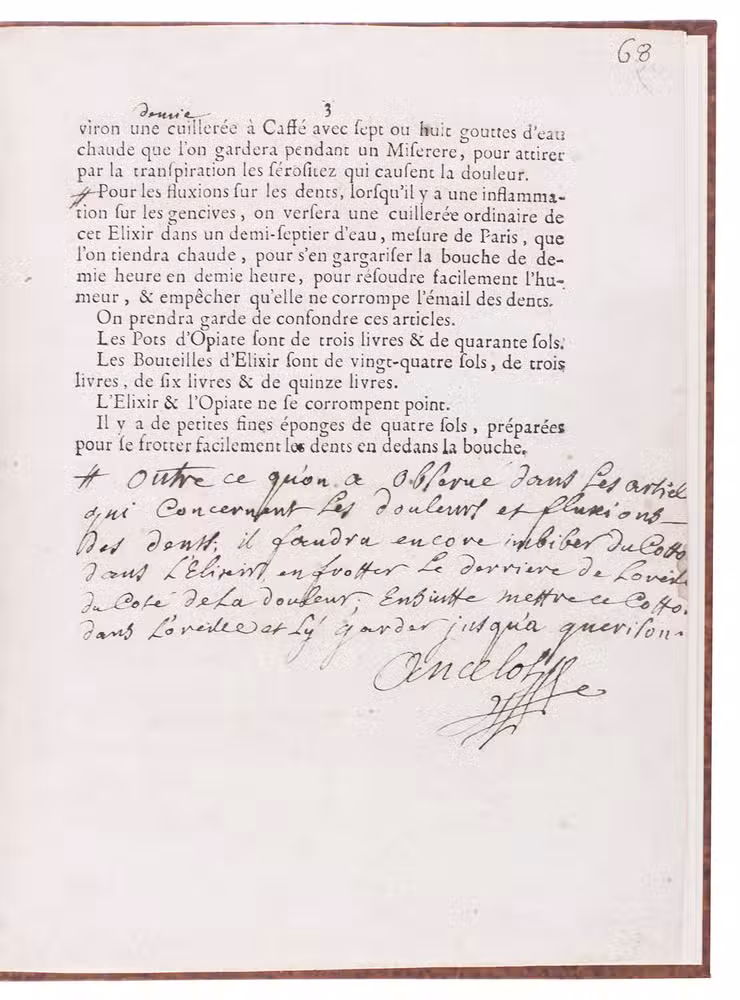 68
3
demie
viron une cuillerée à Caffé avec ſept ou huit gouttes d'eau
chaude que l'on gardera pendant un Miſerere, pour attirer
par la tranſpiration les féroſitez qui cauſent la douleur.
# Pour les fluxions ſur les dents, lorſqu'il y a une inflamma-
tion ſur les gencives, on verſera une cuillerée ordinaire de
cet Elixir dans un demi-ſeptier d'eau, meſure de Paris, que
l'on tiendra chaude, pour s'en gargariſer la bouche de de-
mie heure en demie heure, pour réſoudre facilement l'hu-
meur, & empêcher qu'elle ne corrompe l'émail des dents.
On prendra garde de confondre ces articles.
Les Pots d'Opiate ſont de trois livres & de quarante ſols.
Les Bouteilles d'Elixir ſont de vingt-quatre ſols, de trois
livres, de ſix livres & de quinze livres.
L'Elixir & l'Opiate ne ſe corrompent point.
Il y a de petites fines éponges de quatre ſols, préparées
pour ſe frotter facilement les dents en dedans la bouche.
# outre ce qu'on a obſerué dans Les articl
qui Concernent Les douleurs et fluxions
Des dents, il faudra encore imbiber du Cotto
dans L'Elixir, en frotter Le derriere de Loreil
du Coté de La douleur; Ensuitte mettre ce Cotto.
dans L'oreille et Ly garder jusqu'a guerison.